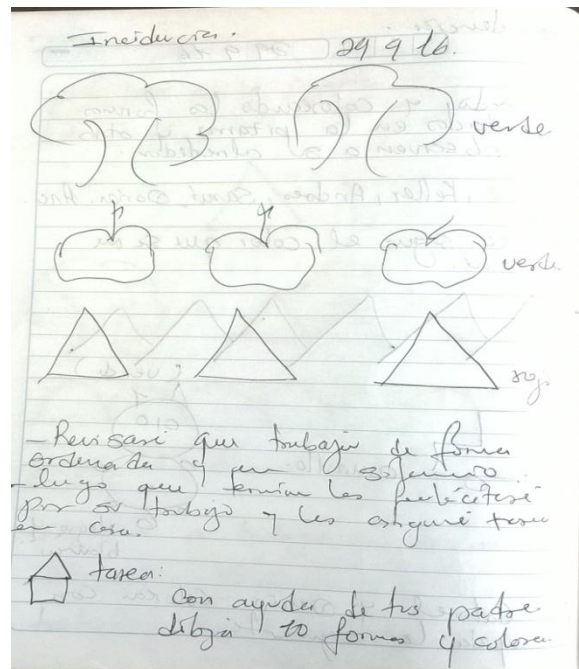 Incidencia.
29 9 16.
verde
verde
rojo
- Revisaré que trabaje de forma
ordenada y en
- luego que termine les felicitaré
por su trabajo y les asignaré tarea
en casa.
tarea:
con ayuda de tus padre
dibuja 10 formas y colorea